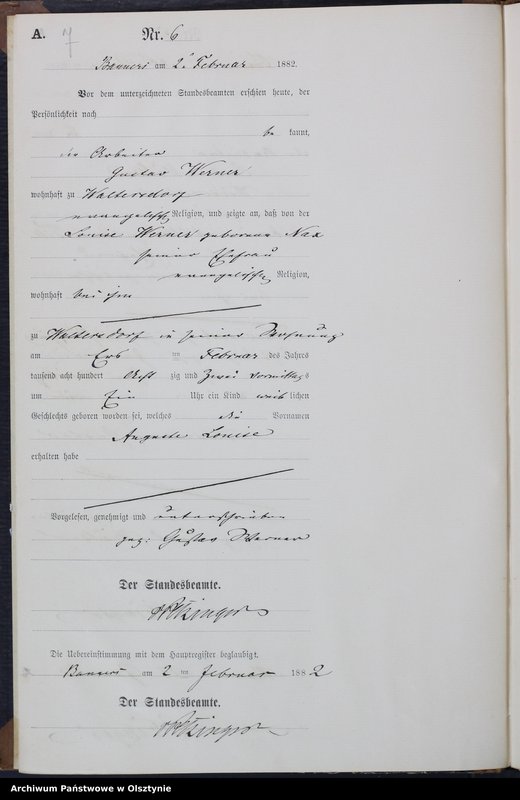 A. 7 Nr. 6
am 2. Februar 1882.
Vor dem unterzeichneten Standesbeamten erschien heute, der
Persönlichkeit nach
be kannt,
der Arbeiter
Gustav Werner
wohnhaft zu Waltersdorf
evangelischer Religion, und zeigte an, daß von der
Louise Werner geborene
seiner Ehefrau
evangelischer Religion,
wohnhaft bei ihm
zu Waltersdorf in seiner Wohnung
am im Februar des Jahres
tausend acht hundert acht zig und zwei Vormittags
um Ein Uhr ein Kind weib lichen
Geschlechts geboren worden sei, welches die Vornamen
Auguste Louise
erhalten habe
Vorgelesen, genehmigt und unterschrieben
gez: Gustav Werner
Der Standesbeamte.
Die Uebereinstimmung mit dem Hauptregister beglaubigt.
am 2 ten Februar 1882
Der Standesbeamte.
Archiwum Państwowe w Olsztynie